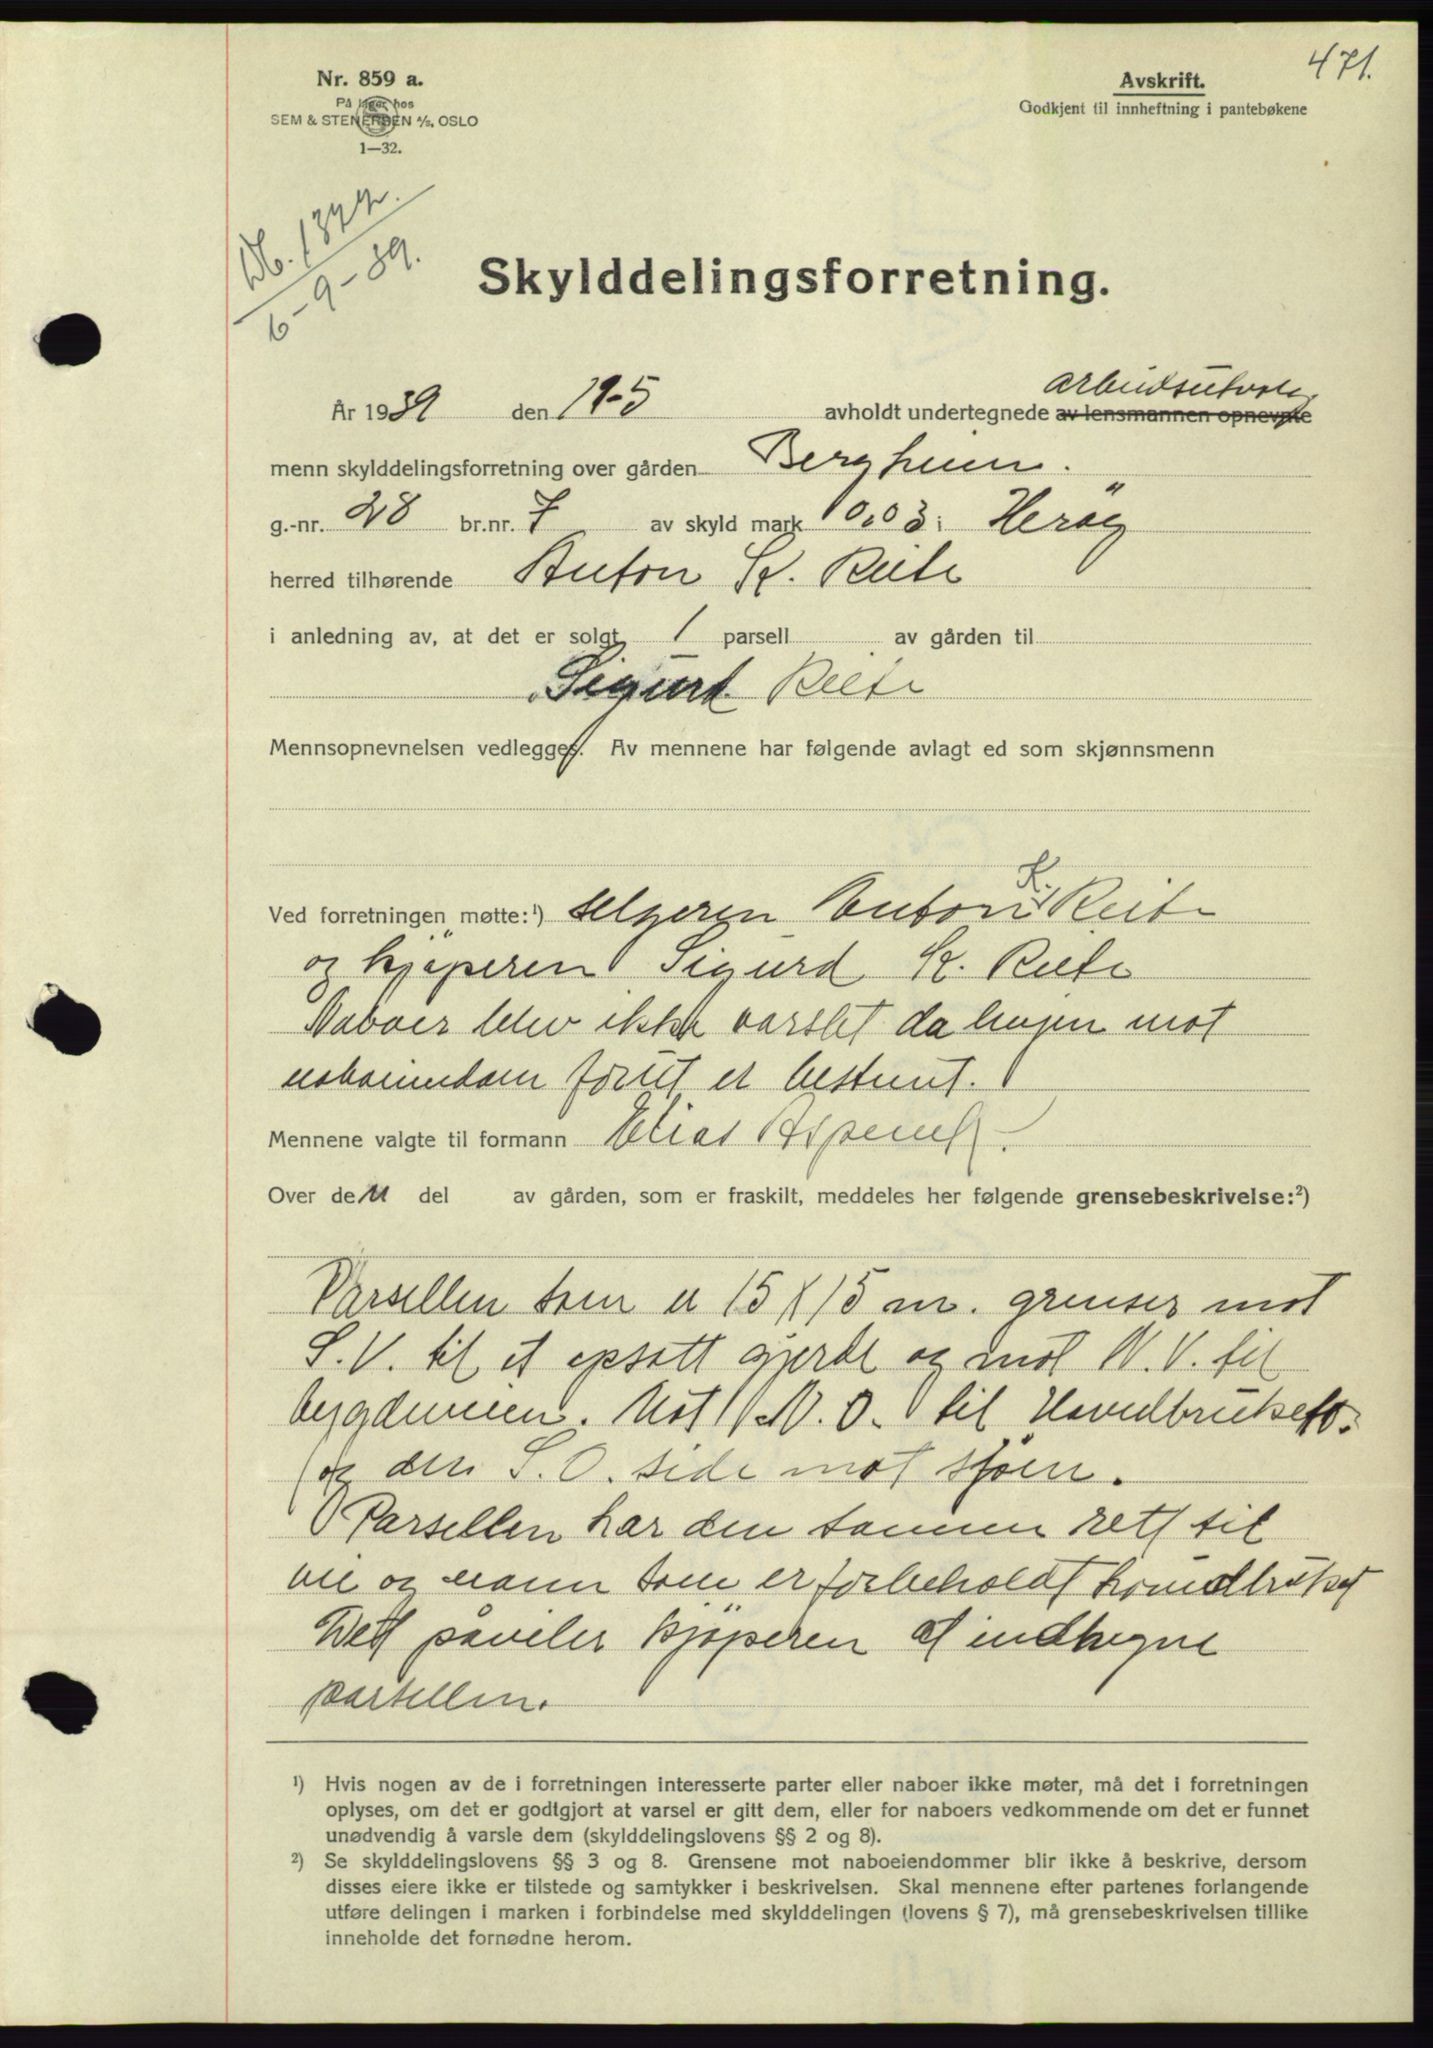 471.
Nr. 859 a.
På lager hos
SEM & STENERSEN A/S, OSLO
1—32.
Avskrift.
Godkjent til innheftning i pantebøkene
6-9-39.
Skylddelingsforretning.
År 1939 den 19-5 avholdt undertegnede av lensmannen opnevnte arbeidsutvalg
menn skylddelingsforretning over gården Bergheim.
g.-nr. 28 br.nr. 7 av skyld mark 0,03 i Herøy
herred tilhørende Anton K. Reite
i anledning av, at det er solgt 1 parsell av gården til
Sigurd Reite
Mennsopnevnelsen vedlegges. Av mennene har følgende avlagt ed som skjønnsmenn
Ved forretningen møtte:¹) selgeren Anton K. Reite
og kjöperen Sigurd K. Reite
Naboer blev ikke varslet da linjen mot
naboeiendom forut er bestemt.
Mennene valgte til formann Elias Aspenes
Over den del av gården, som er fraskilt, meddeles her følgende grensebeskrivelse:²)
Parsellen som er 15 X 15 m. grenser mot
S.V. til et opsatt gjerde og mot N.V. til
bygdeveien. Mot N.O. til Hovedbruket
og den S.O. side mot sjöen.
Parsellen har den samme rett til
vei og vann som er forbeholdt hovedbruket
Det påviler kjöperen at indhegne
parsellen.
¹) Hvis nogen av de i forretningen interesserte parter eller naboer ikke møter, må det i forretningen
oplyses, om det er godtgjort at varsel er gitt dem, eller for naboers vedkommende om det er funnet
unødvendig å varsle dem (skylddelingslovens §§ 2 og 8).
²) Se skylddelingslovens §§ 3 og 8. Grensene mot naboeiendommer blir ikke å beskrive, dersom
disses eiere ikke er tilstede og samtykker i beskrivelsen. Skal mennene efter partenes forlangende
utføre delingen i marken i forbindelse med skylddelingen (lovens § 7), må grensebeskrivelsen tillike
inneholde det fornødne herom.